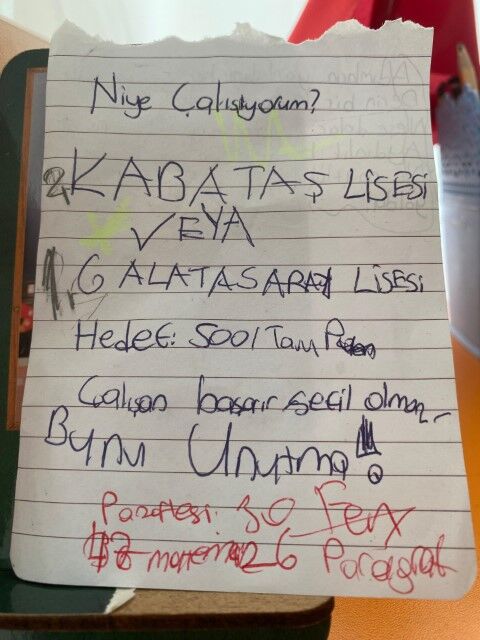 Niye Çalışıyorum?
2. KABATAŞ LİSESİ
VEYA
1. GALATASARAY LİSESİ
Hedef: 500/Tam Puan
Çalışan başarır sefil olmaz
Bunu Unutma!!
Pazartesi 30 Fen
matematik 26 Paragraf